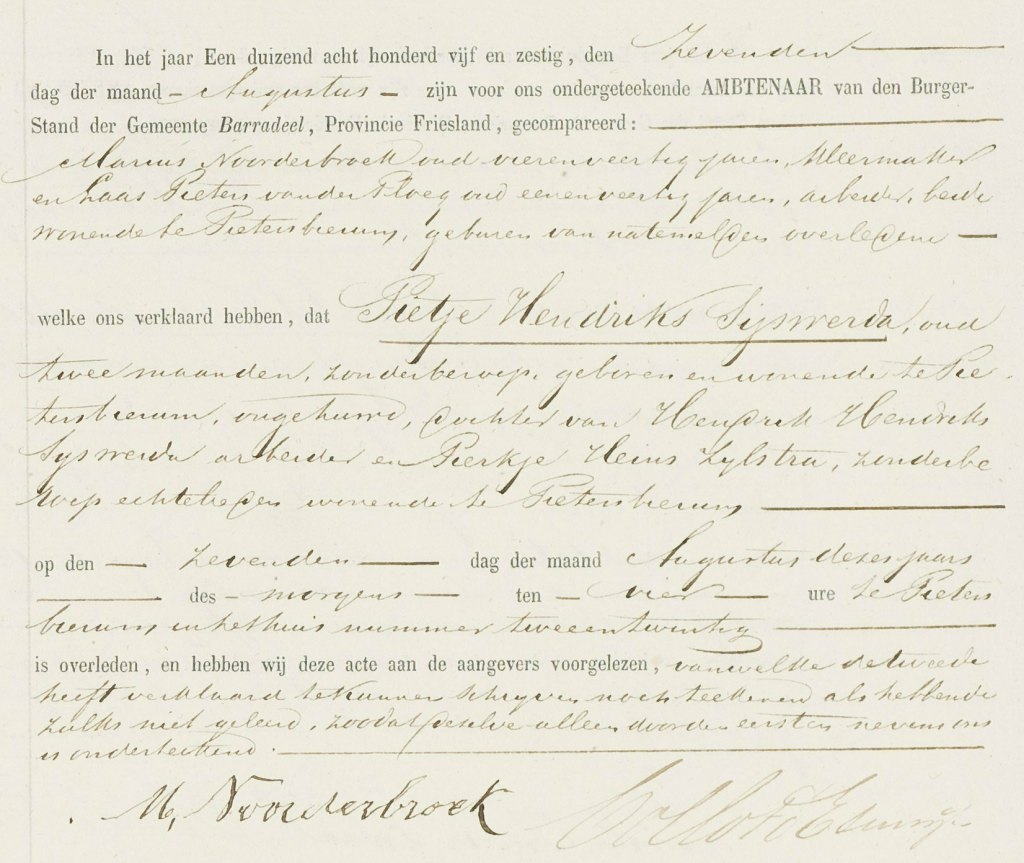 In het jaar Een duizend acht honderd vijf en zestig, den zevenden
dag der maand Augustus zijn voor ons ondergeteekende AMBTENAAR van den Burger-
Stand der Gemeente Barradeel, Provincie Friesland, gecompareerd:
Marius Noorderbroek oud vierenveertig jaren, kleermaker
en Laas Pieters van der Ploeg oud eenenveertig jaren, arbeider, beide
wonende te Pietersbierum, geburen van natemelden overledene
welke ons verklaard hebben, dat Pietje Hendriks Sijswerda, oud
twee maanden, zonder beroep, geboren en wonende te Pie-
tersbierum, ongehuwd, dochter van Hendrik Hendriks
Sijswerda arbeider en Pierkje Heins Zylstra, zonder be
roep echtelieden wonende te Pietersbierum
op den zevenden dag der maand Augustus dezes jaars
des morgens ten vier ure te Pieters
bierum, in het huis nummer tweeentwintig
is overleden, en hebben wij deze acte aan de aangevers voorgelezen, van welke de tweede
heeft verklaard te kunnen schrijven noch teekenen als hebbende
zulks niet geleerd, zoodat dezelve alleen door den eersten nevens ons
is onderteekend.
M, Noorderbroek